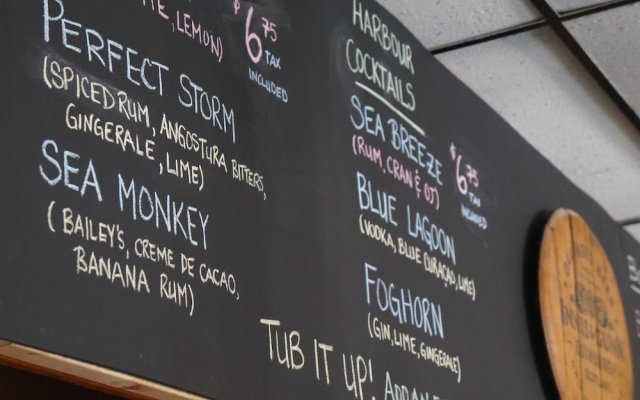 , LEMON)
$6.75
TAX
INCLUDED
PERFECT STORM
(SPICED RUM, ANGOSTURA BITTERS,
GINGERALE, LIME)
SEA MONKEY
( BAILEY'S, CREME DE CACAO,
BANANA RUM)
HARBOUR
COCKTAILS
SEA BREEZE
(RUM, CRAN & OJ)
$6.75
TAX
INCLUDED
BLUE LAGOON
(VODKA, BLUE CURAÇAO, LIME)
FOGHORN
(GIN, LIME, GINGERALE)
TUB IT UP!